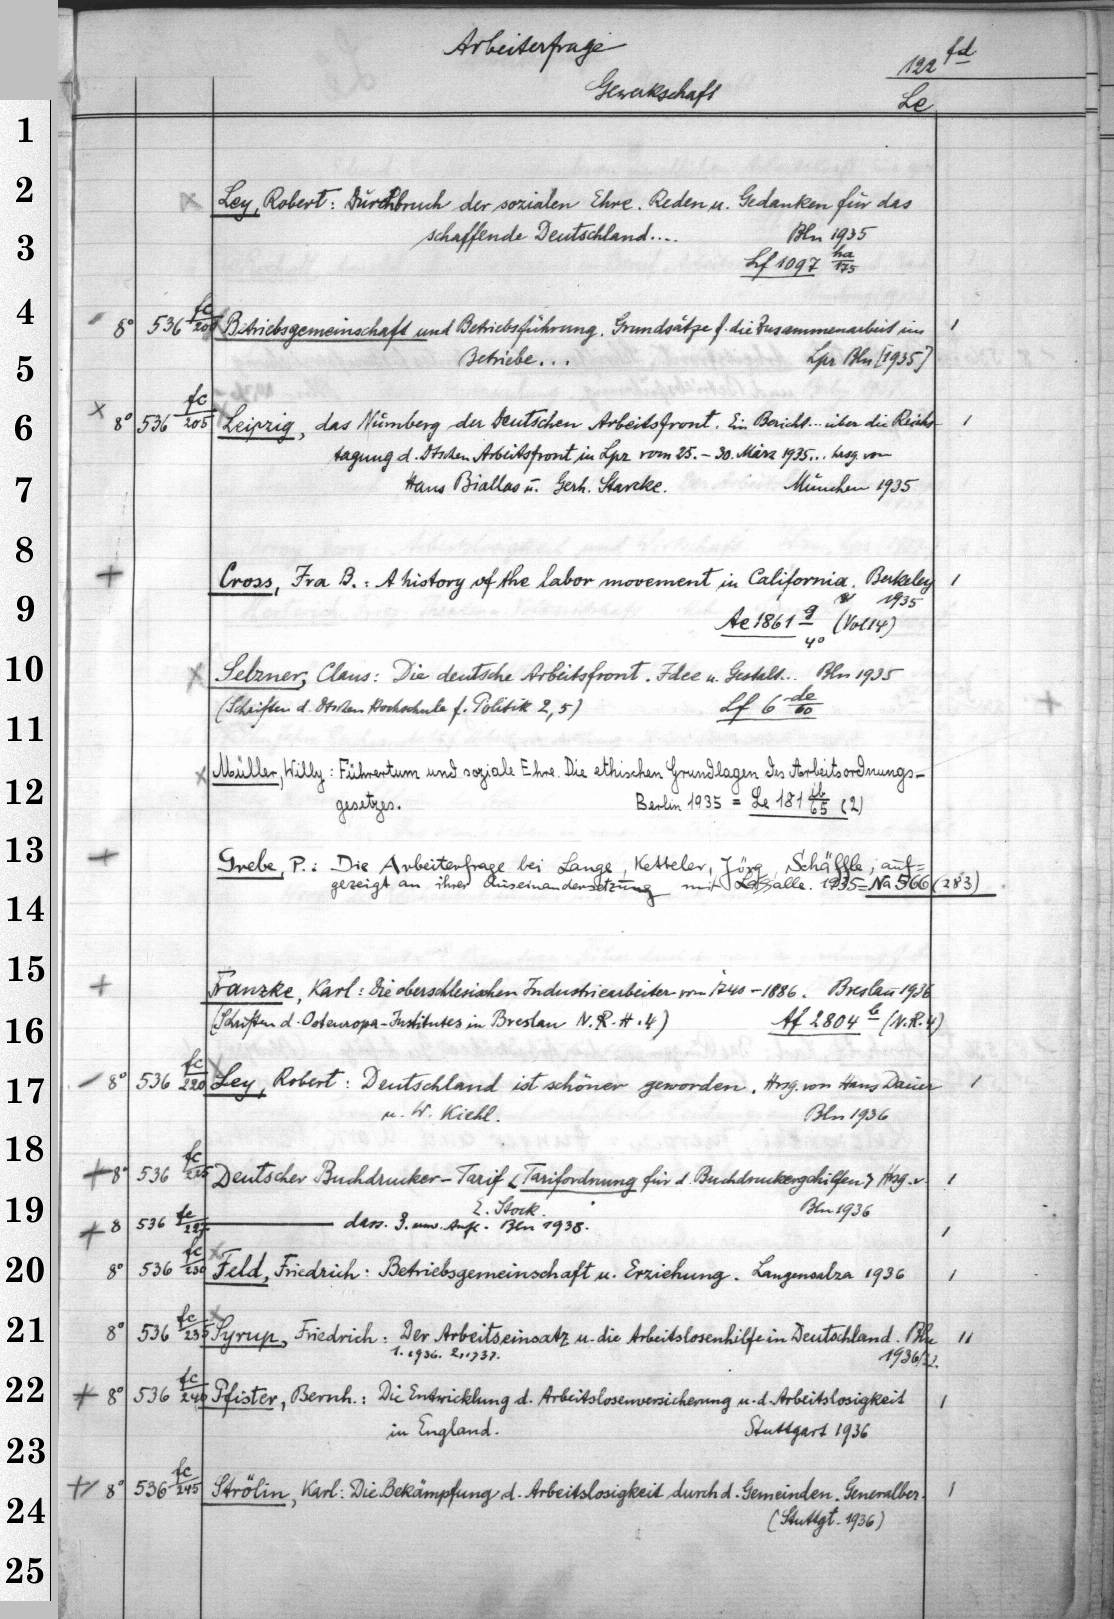 Arbeiterfrage
122 fd
Gewerkschaft
Le
1
2 x Ley, Robert: Durchbruch der sozialen Ehre. Reden u. Gedanken für das
3 schaffende Deutschland.... Bln 1935
Lf 1097 ha/175
4 8° 536 fc/200 Betriebsgemeinschaft und Betriebsführung. Grundsätze f. die Zusammenarbeit im 1
5 Betriebe... Lpz Bln [1935]
6 x 8° 536 fc/205 Leipzig, das Nürnberg der Deutschen Arbeitsfront. Ein Bericht... über die Reichs- 1
tagung d. Dtschen Arbeitsfront in Lpz vom 25. – 30. März 1935... hrsg. von
7 Hans Biallas u. Gerh. Starcke. München 1935
8
+ Cross, Ira B.: A history of the labor movement in California. Berkeley 1
9 1935
Ae 1861 g/4° (Vol 14)
10 x Selzner, Claus: Die deutsche Arbeitsfront. Idee u. Gestalt... Bln 1935
(Schriften d. Dtschen Hochschule f. Politik 2,5) Lf 6 de/60 +
11
x Müller, Willy: Führertum und soziale Ehre. Die ethischen Grundlagen des Arbeitsordnungs-
12 gesetzes. Berlin 1935 = Le 181 /65 (2)
13 + Grebe, P.: Die Arbeiterfrage bei Lange, Ketteler, Jörg, Schäffle; auf=
gezeigt an ihrer Auseinandersetzung mit Lassalle. 1935 = Na 566 (283)
14
15 + Franzke, Karl: Die oberschlesischen Industriearbeiter von 1740 – 1886. Breslau 1936
16 (Schriften d. Osteuropa-Institutes in Breslau N. R. H. 4) Af 2804 b (N.R. 4)
17 8° 536 fc/220 Ley, Robert: Deutschland ist schöner geworden. Hrsg. von Hans Dauer 1
u. W. Kiehl. Bln 1936
18 + 8° 536 fc/225 Deutscher Buchdrucker-Tarif <Tarifordnung für d. Buchdruckergehilfen> Hrsg. v. 1
19 E. Stock. Bln 1936
+ 8 536 fc/227 ——— dass. 3. unv. Aufl. Bln 1938. 1
20 8° 536 fc/230 x Feld, Friedrich: Betriebsgemeinschaft u. Erziehung. Langensalza 1936 1
21 8° 536 fc/235 x Syrup, Friedrich: Der Arbeitseinsatz u. die Arbeitslosenhilfe in Deutschland. Bln 11
1. 1936. 2, 1937. 1936/37.
22 + 8° 536 fc/240 Pfister, Bernh.: Die Entwicklung d. Arbeitslosenversicherung u. d. Arbeitslosigkeit 1
in England. Stuttgart 1936
23
24 + 8° 536 fc/245 Strölin, Karl: Die Bekämpfung d. Arbeitslosigkeit durch d. Gemeinden. Generalber. 1
(Stuttgt. 1936)
25